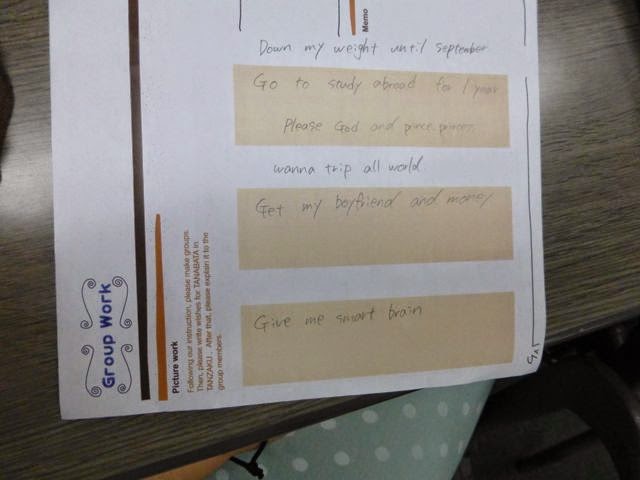 Group Work
Picture work
Following our instruction, please make groups.
Then, please write wishes for TANABATA in
TANZAKU. After that, please explain it to the
group members.
Memo
Down my weight until september
Go to study abroad for 1 year
Please God and
wanna trip all world
Get my boyfriend and money
Give me smart brain